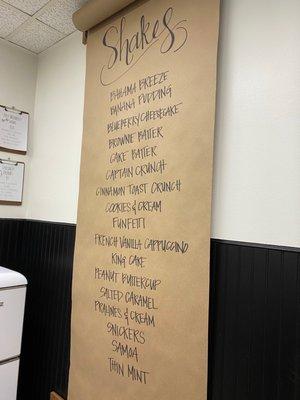 Shakes
BAHAMA BREEZE
BANANA PUDDING
BLUEBERRY CHEESECAKE
BROWNIE BATTER
CAKE BATTER
CAPTAIN CRUNCH
CINNAMON TOAST CRUNCH
COOKIES & CREAM
FUNFETTI
FRENCH VANILLA CAPPUCCINO
KING CAKE
PEANUT BUTTERCUP
SALTED CARAMEL
PRALINES & CREAM
SNICKERS
SAMOA
THIN MINT